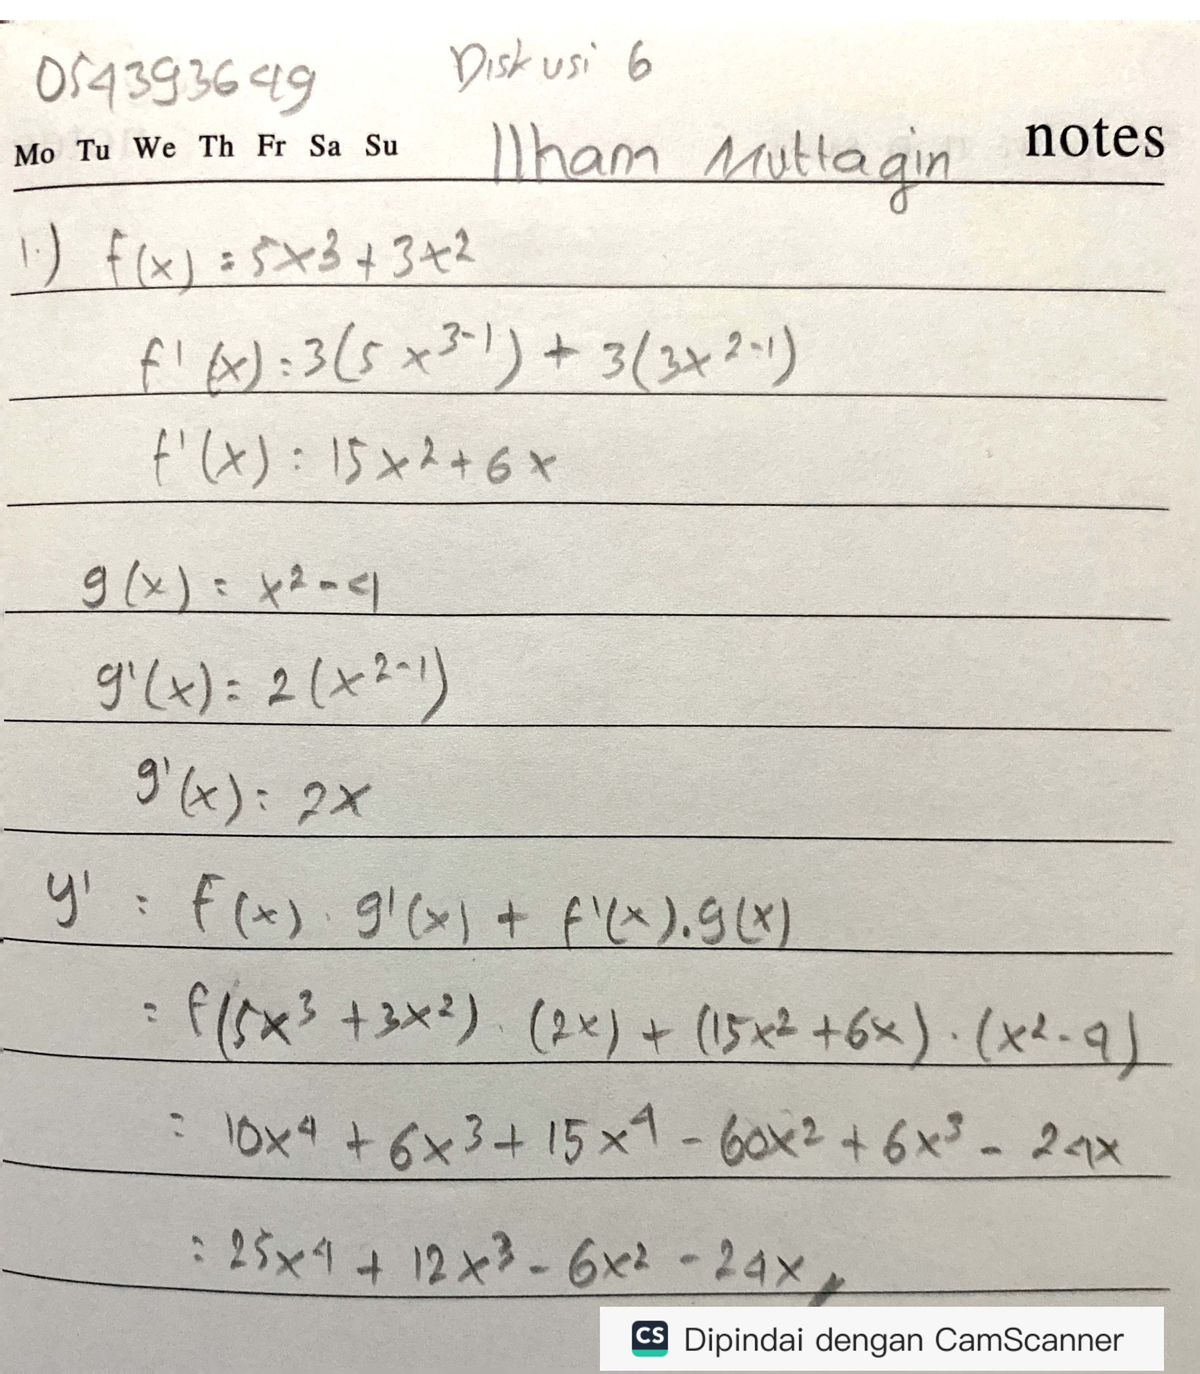 054393649 Diskusi 6
Mo Tu We Th Fr Sa Su Ilham Muttaqin notes
1.) f(x) = 5x3 + 3x2
f'(x) = 3(5x^3-1) + 3(3x^2-1)
f'(x) = 15x^2 + 6x
g(x) = x^2 - 4
g'(x) = 2(x^2-1)
g'(x) = 2x
y' = f(x) . g'(x) + f'(x) . g(x)
= f(5x^3 + 3x^2) . (2x) + (15x^2 + 6x) . (x^2 - 4)
= 10x^4 + 6x^3 + 15x^4 - 60x^2 + 6x^3 - 24x
= 25x^4 + 12x^3 - 6x^2 - 24x
CS Dipindai dengan CamScanner